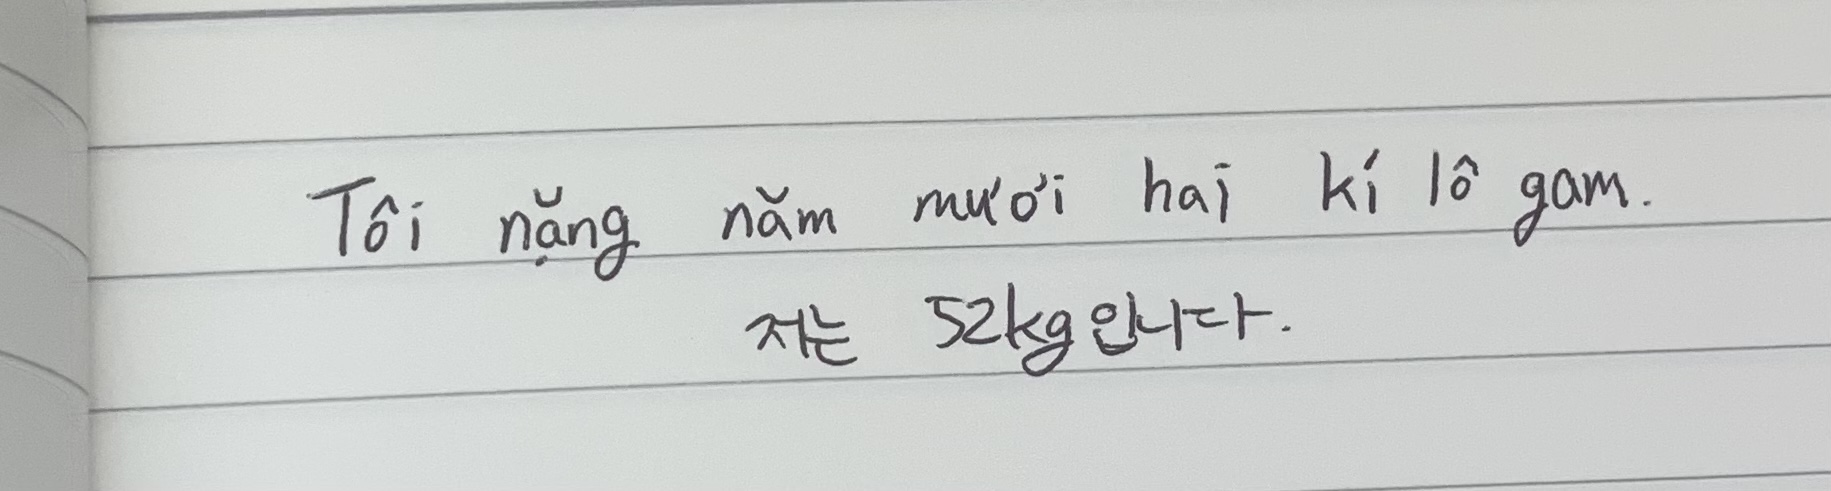 Tôi nặng năm mươi hai kí lô gam.
저는 52kg입니다.